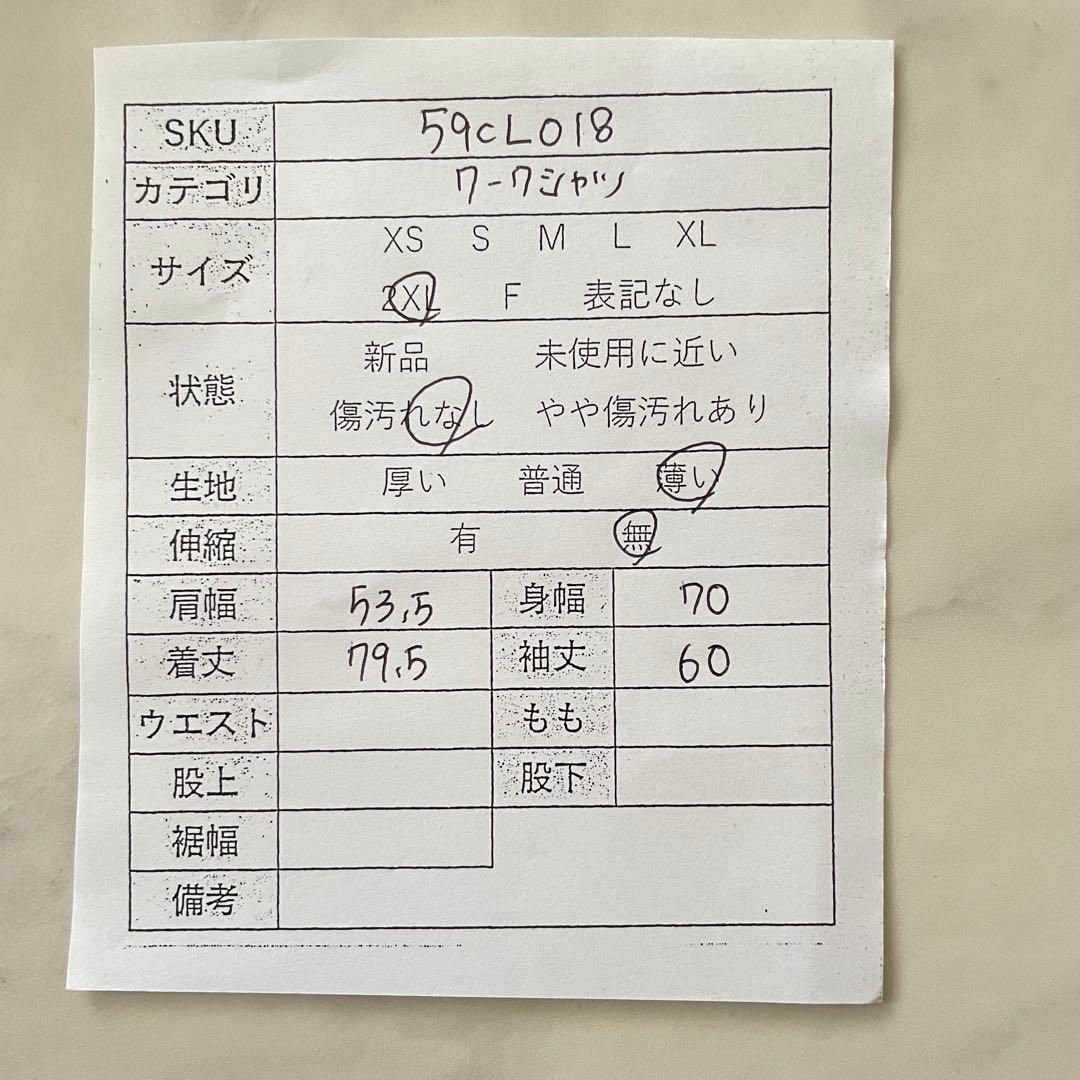 SKU 59CL018
カテゴリ ワークシャツ
サイズ XS S M L XL
2XL F 表記なし
状態 新品 未使用に近い
傷汚れなし やや傷汚れあり
生地 厚い 普通 薄い
伸縮 有 無
肩幅 53.5 身幅 70
着丈 79.5 袖丈 60
ウエスト もも
股上 股下
裾幅
備考